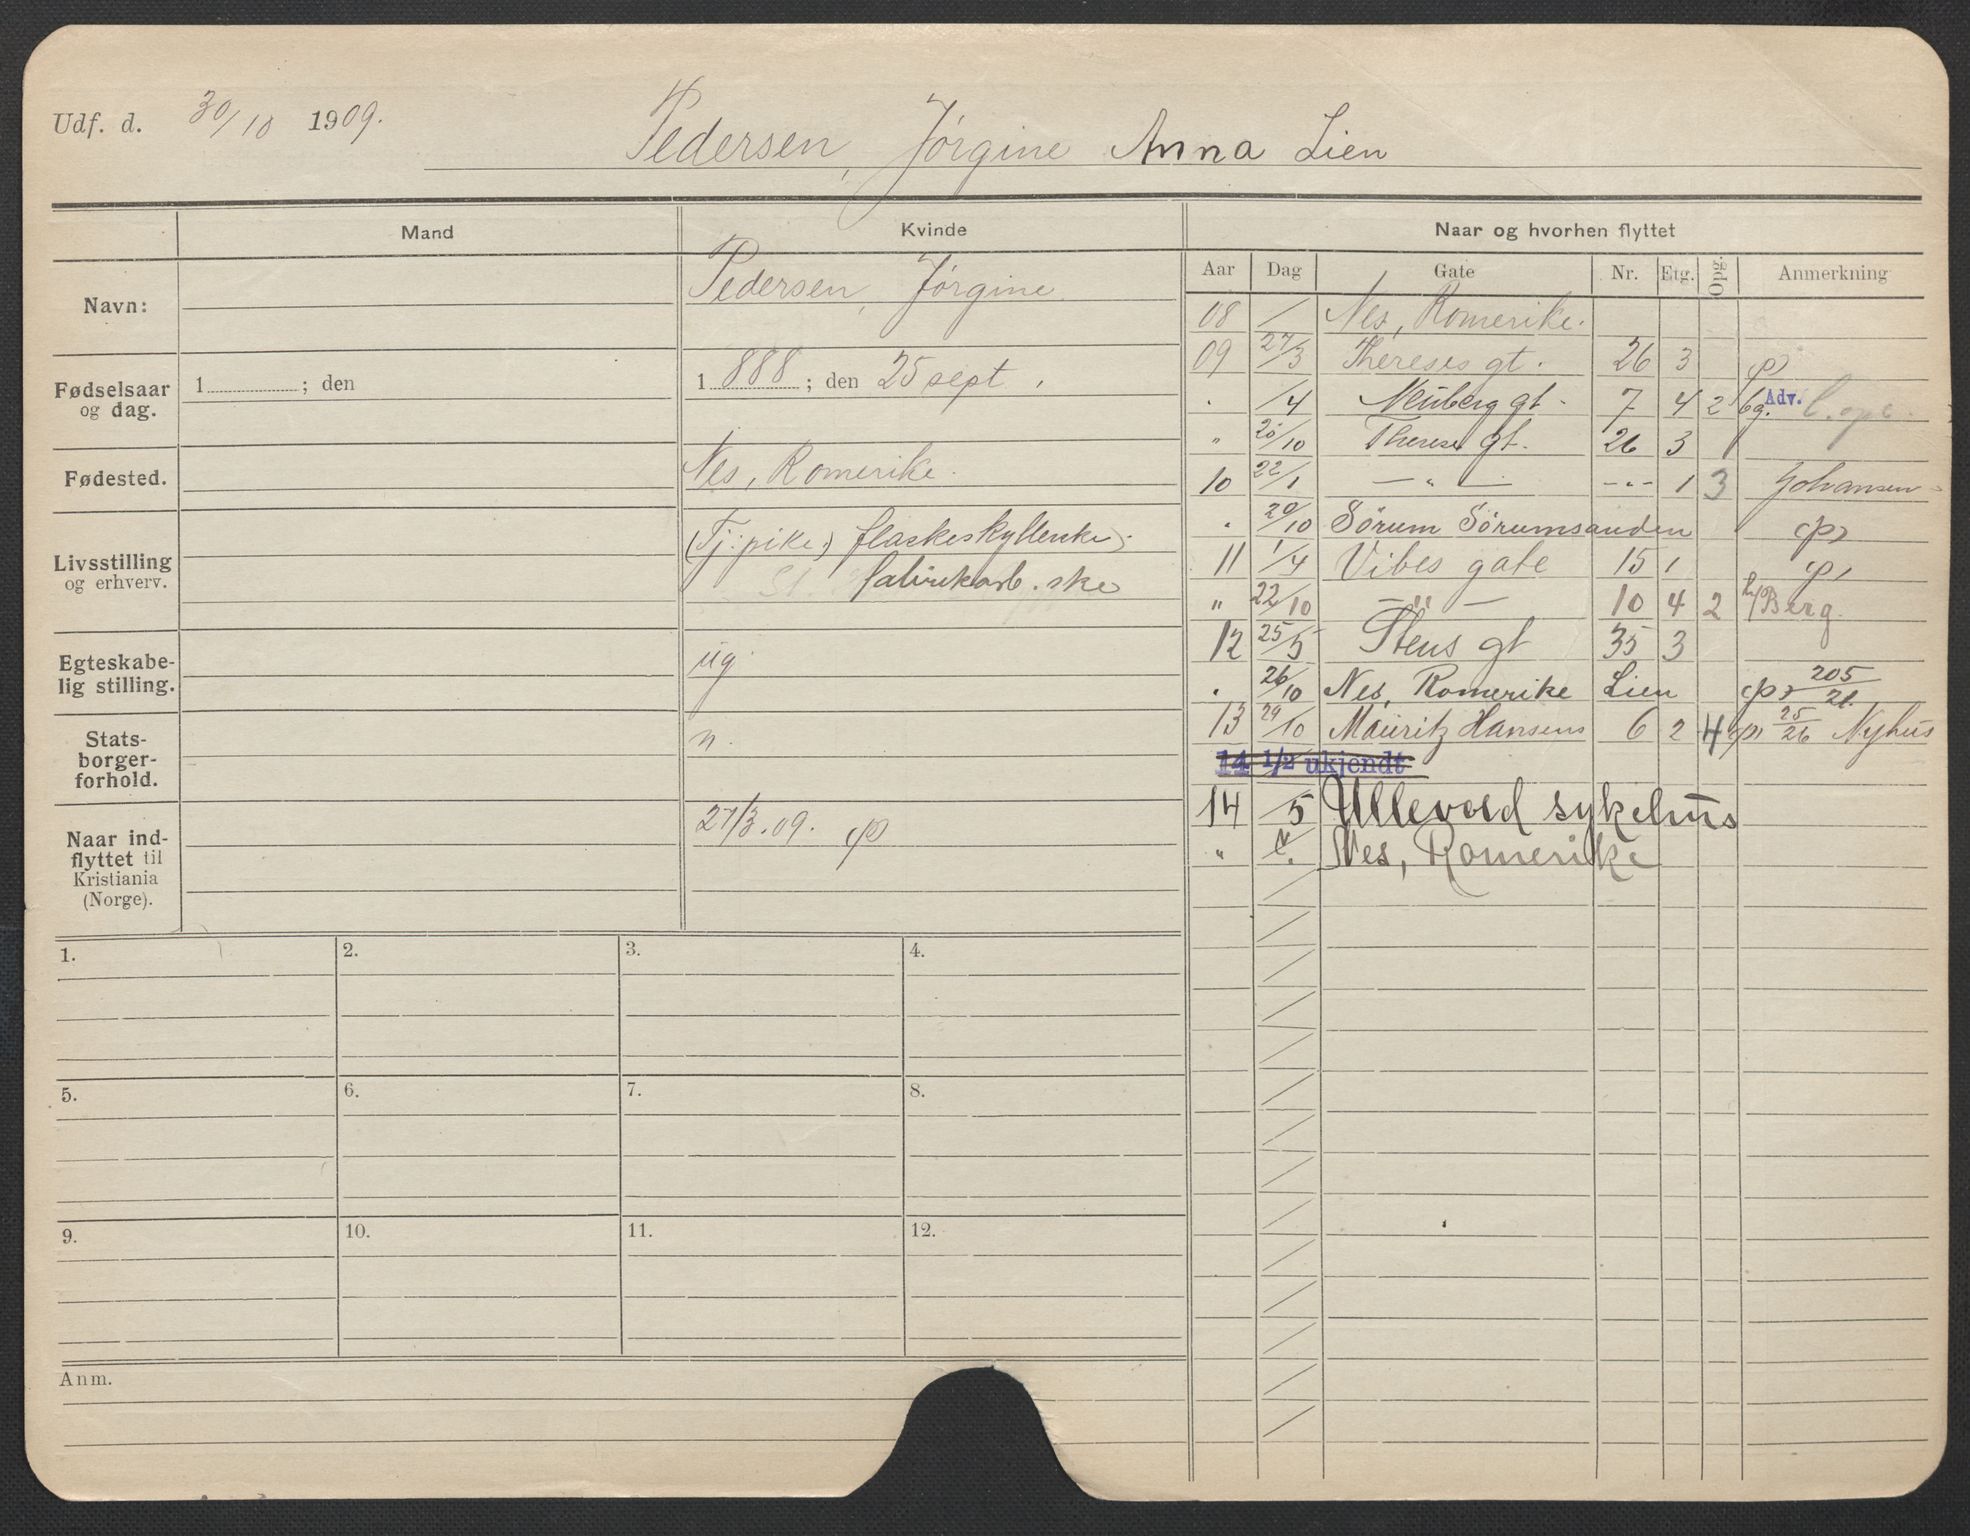 Udf. d. 30/10 1909.
Pedersen, Jørgine Anna Lien
Mand
Kvinde
Naar og hvorhen flyttet
Aar Dag Gate Nr. Etg. Opg. Anmerkning
Navn:
Pedersen, Jørgine
Fødselsaar
og dag.
1 ; den
1888 ; den 25 sept.
Fødested.
Nes, Romerike.
Livsstilling
og erhverv.
(Tj: pike) flaskeskyllerske;
fabrikarb.ske
Egteskabe-
lig stilling.
ug
Stats-
borger-
forhold.
n.
Naar ind-
flyttet til
Kristiania
(Norge).
27/3.09. p
08 / Nes, Romerike.
09 27/3 Thereses gt. 26 3 p
. /4 Neuberg gt. 7 4 2 bg. Adv.
" 20/10 Therese gt. 26 3
10 22/1 — " — - " - 1 3 Johansen
. 20/10 Sørum Sørumsanden p
11 1/4 Vibes gate 15 1 p
" 22/10 — " — 10 4 2 h/Berg
12 25/5 Stens gt 35 3
. 26/10 Nes, Romerike Lien p 205/21.
13 29/10 Mauritz Hansens 6 2 4 p 25/26 Nyhus
14 1/2 ukjendt
14 /5 Ullevold sykehus
" Nes, Romerike
1. 2. 3. 4.
5. 6. 7. 8.
9. 10. 11. 12.
Anm.